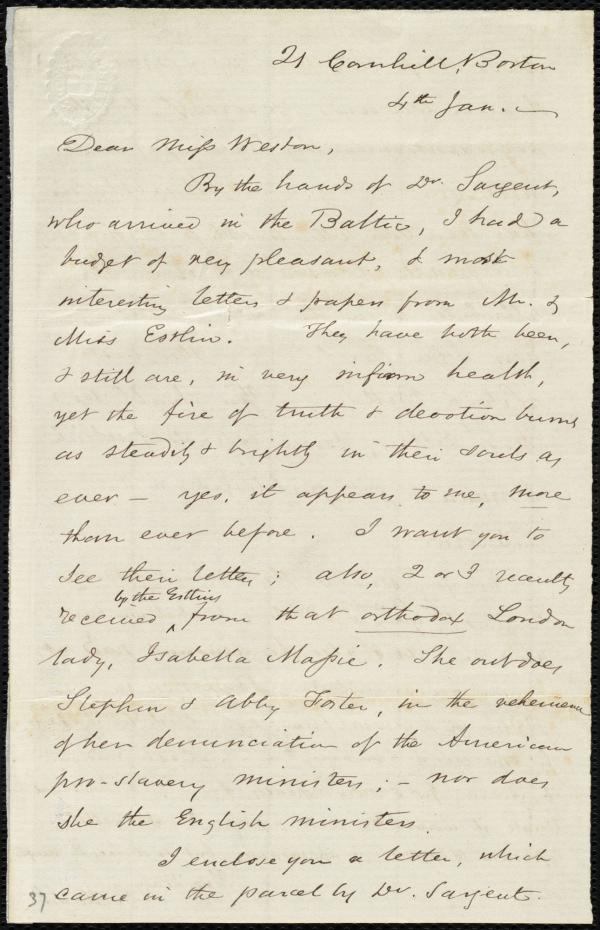 21 Cornhill, Boston
4th Jan.
Dear Miss Weston,
By the hands of Dr. Sargent,
who arrived in the Baltic, I had a
budget of very pleasant, & most
interesting letters & papers from Mr. &
Miss Estlin. They have both been,
& still are, in very infirm health,
yet the fire of truth & devotion burns
as steadily & brightly in their souls as
ever – yes, it appears to me, more
than ever before. I want you to
see their letters; also, 2 or 3 recently
by the Estlins
received ‸ from that orthodox London
lady, Isabella Massie. She outdoes
Stephen & Abby Foster, in the vehemence
of her denunciation of the American
pro-slavery ministers; – nor does
she the English ministers.
I enclose you a letter, which
came in the parcel by Dr. Sargent.
37